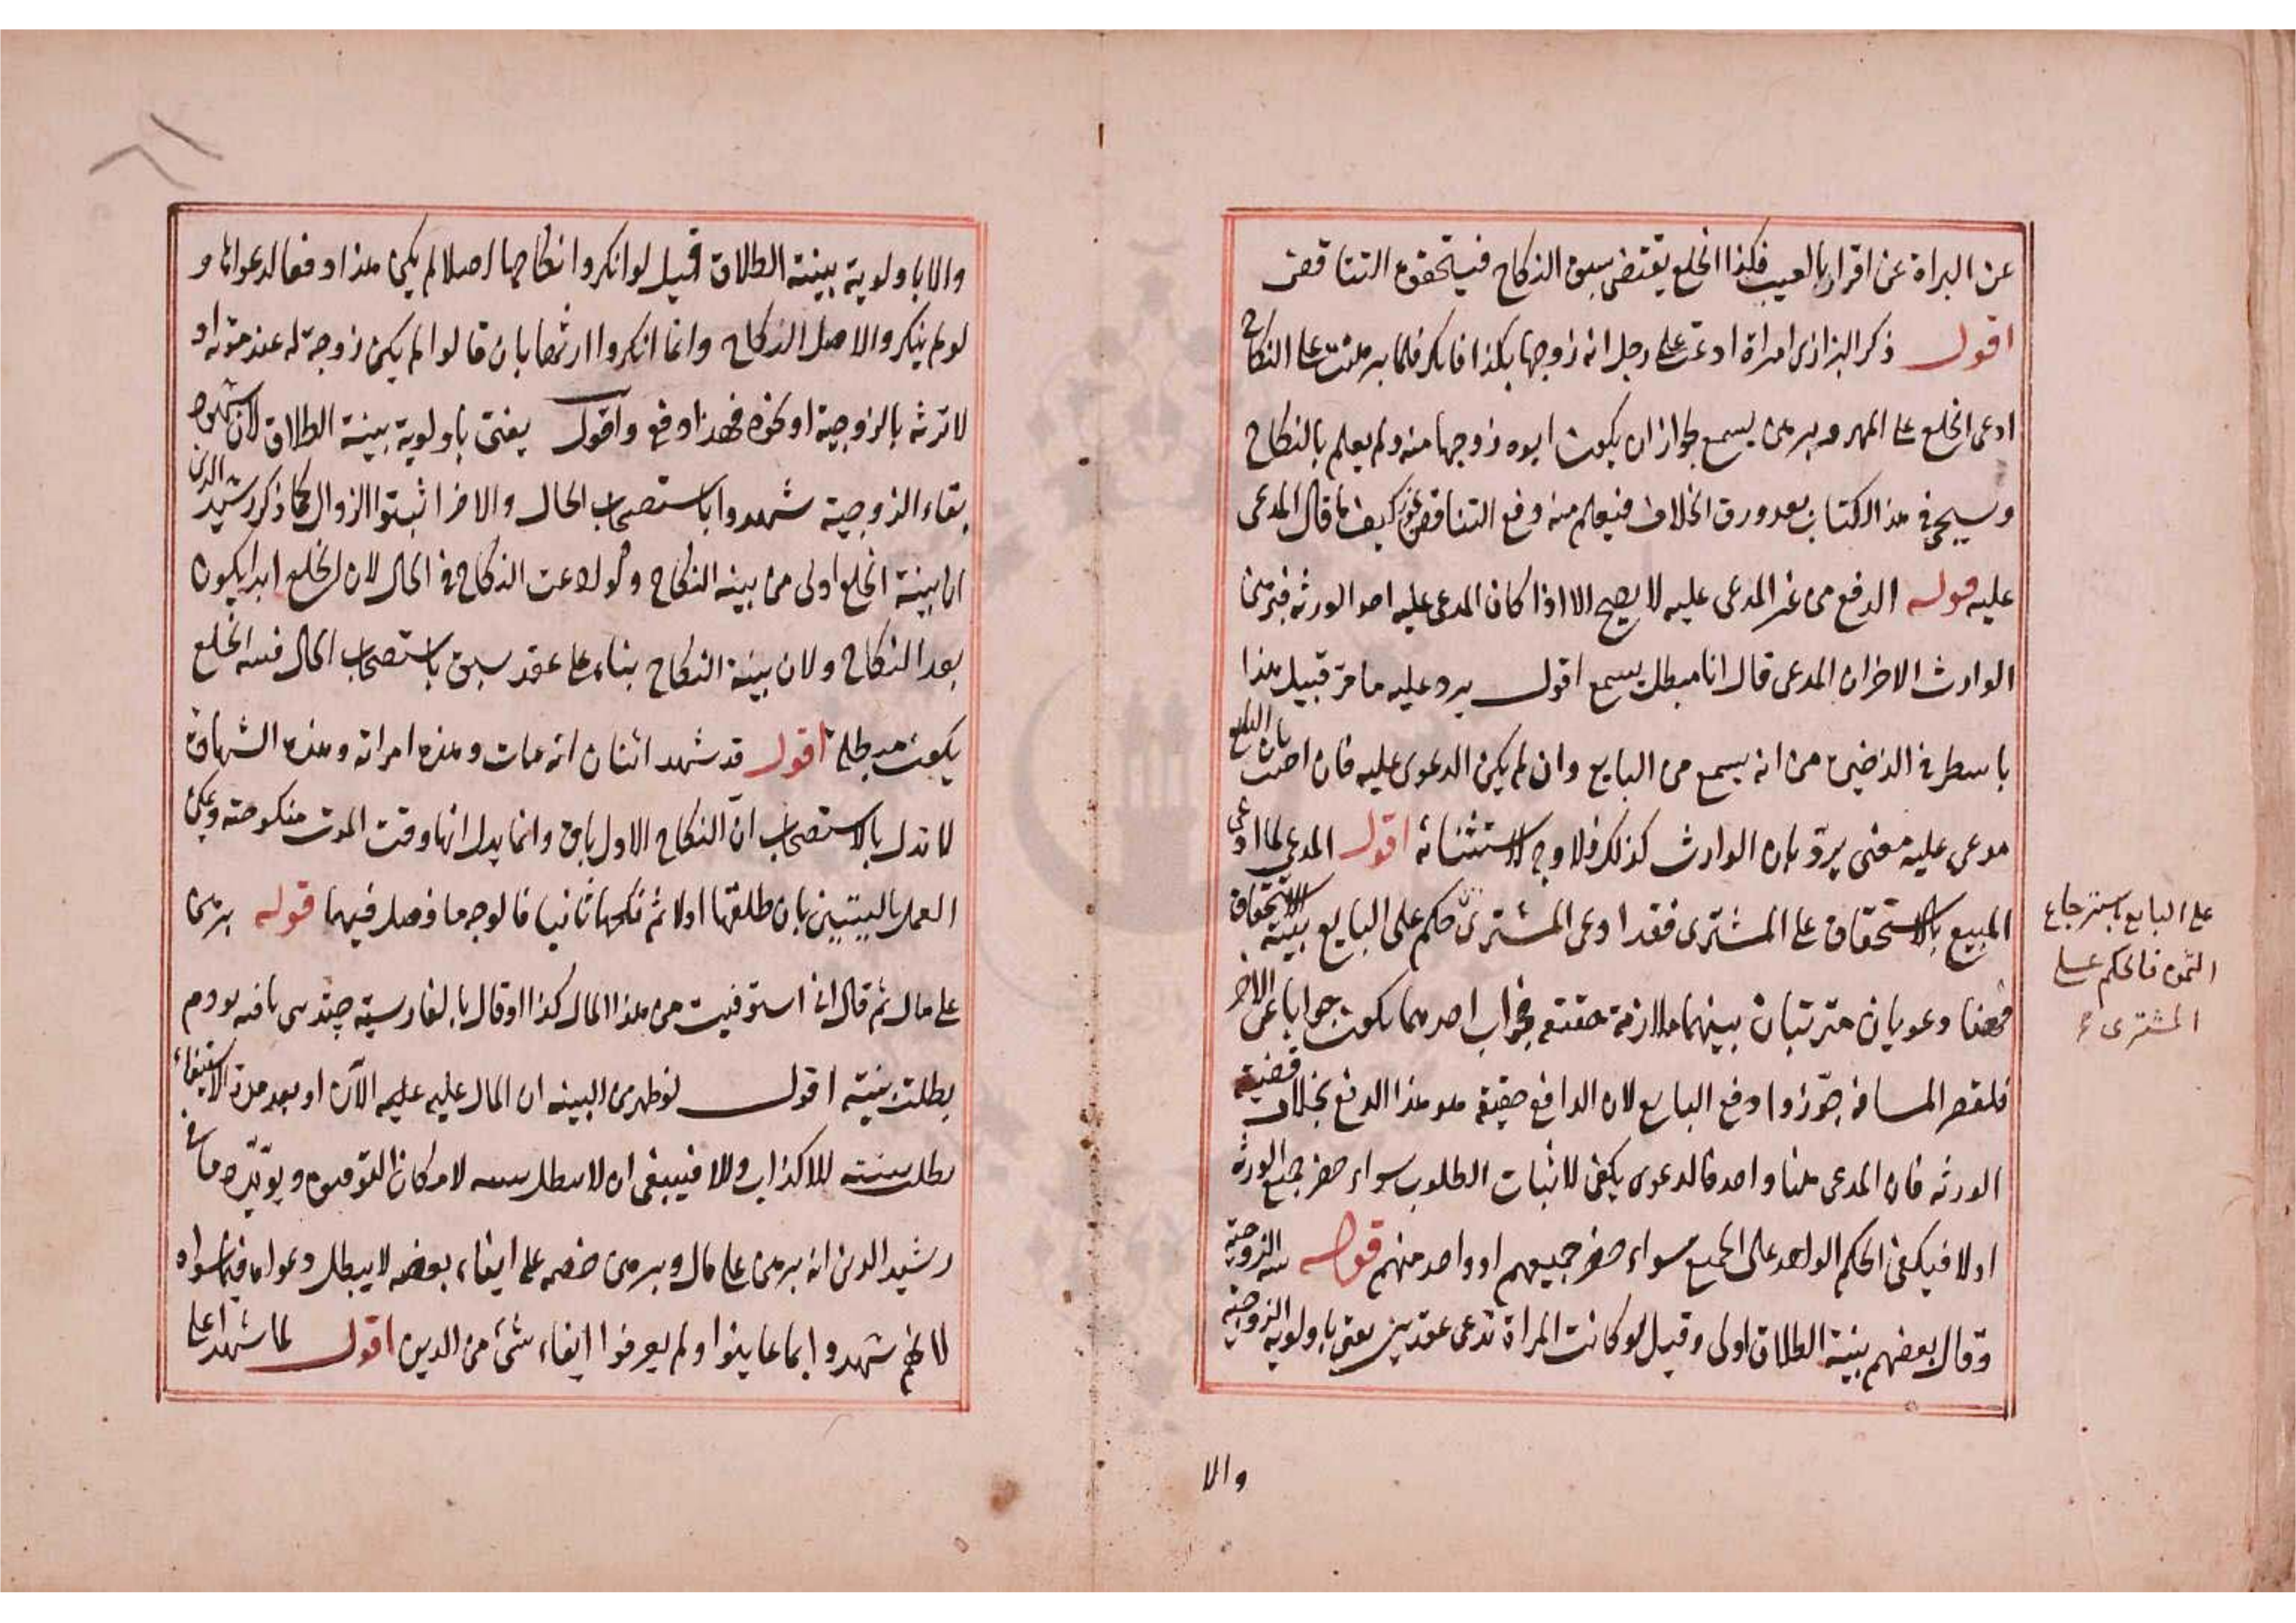 عن البراة عن اقرار بالعيب فكذا الخلع يقتضى سبق النكاح فيتحقق التناقض
اقول ذكر البزازى امراة ادعت على رجل انه زوجها بكذا فانكر فلما برهنت على النكاح
ادعى الخلع على المهر وبرهن يسمع لجواز ان يكون ابوه زوجها منه ولم يعلم بالنكاح
وسيجئ فى هذا الكتاب بعد ورق الخلاف فيعلم منه دفع التناقض كيف ما قال المدعى
عليه قوله الدفع من غير المدعى عليه لا يصح الا اذا كان المدعى عليه احد الورثة فبرهن
الوارث الاخر ان المدعى قال انا مبطل يسمع اقول يرد عليه ما مر قبيل هذا
باسطر فى الذخيرة من انه يسمع من البايع وان لم يكن الدعوى عليه فان اجيب بان البايع
مدعى عليه معنى يرد بان الوارث كذلك فلا وجه لاستثنائه اقول المدعى لما ادعى
المبيع بالاستحقاق على المشترى فقد ادعى المشترى حكم على البايع بينة الاستحقاق
على البايع باسترجاع
الثمن فالحكم على
المشترى
فههنا دعويان مترتبان بينهما ملازمة حقيقة فجواب احدهما يكون جوابا عن الاخر
فلقصر المسافة جوزوا دفع البايع لان الدافع حقيقة هو هذا الدفع بخلاف قضية
الورثة فان المدعى هنا واحد فالدعوى يكفى لاثبات المطلوب سواء حضر جميع الورثة
اولا فيكفى الحكم الواحد على الجميع سواء حضر جميعهم او واحد منهم قوله بينة الزوجية
وقال بعضهم بينة الطلاق اولى وقيل لو كانت المراة تدعى عقدين يفتى باولوية الزوجية
والا
والا باولوية بينة الطلاق قيل لو انكروا نكاحها اصلا لم يكن هذا دفعا لدعواها و
لو لم ينكروا لاصل النكاح وانما انكروا ارثها بان قالوا لم يكن زوجة له عند موته او
لا ترثه بالزوجية او نحوه فهذا دفع واقول يفتى باولوية بينة الطلاق لان شهود
بقاء الزوجية شهدوا باستصحاب الحال والاخر اثبتوا الزوال كما ذكر رشيد الدين
ان بينة الخلع اولى من بينة النكاح ولو ادعت النكاح فى الحال لان الخلع ابدا يكون
بعد النكاح ولان بينة النكاح بناء على عقد سبق باستصحاب الحال فبينة الخلع
يكون مبطلة اقول قد شهد اثنان انه مات وهذه امراته وهذه الشهادة
لا تدل بالاستصحاب ان النكاح الاول باق وانما يدل انها وقت الموت منكوحته ويمكن
العمل بالبينتين بان طلقها اولا ثم نكحها ثانيا فالوجه ما فصل فيهما قوله برهن
على مال ثم قال انى استوفيت من هذا المال كذا او قال بالفارسية چندين يافته بودم
بطلت بينته اقول لو ظهر من البينة ان المال عليه عليه الآن او بعد مدة الاستيفاء
بطلت بينته للاكذاب والا فينبغى ان لا يبطل بينته لامكان التوفيق ويؤيده ما فى
رشيد الدين انه برهن على مال وبرهن خصمه على ايفاء بعضه لا يبطل دعواه فيما سواه
لانهم شهدوا بما عاينوا ولم يعرفوا ايفاء شئ من الدين اقول لما شهدا على